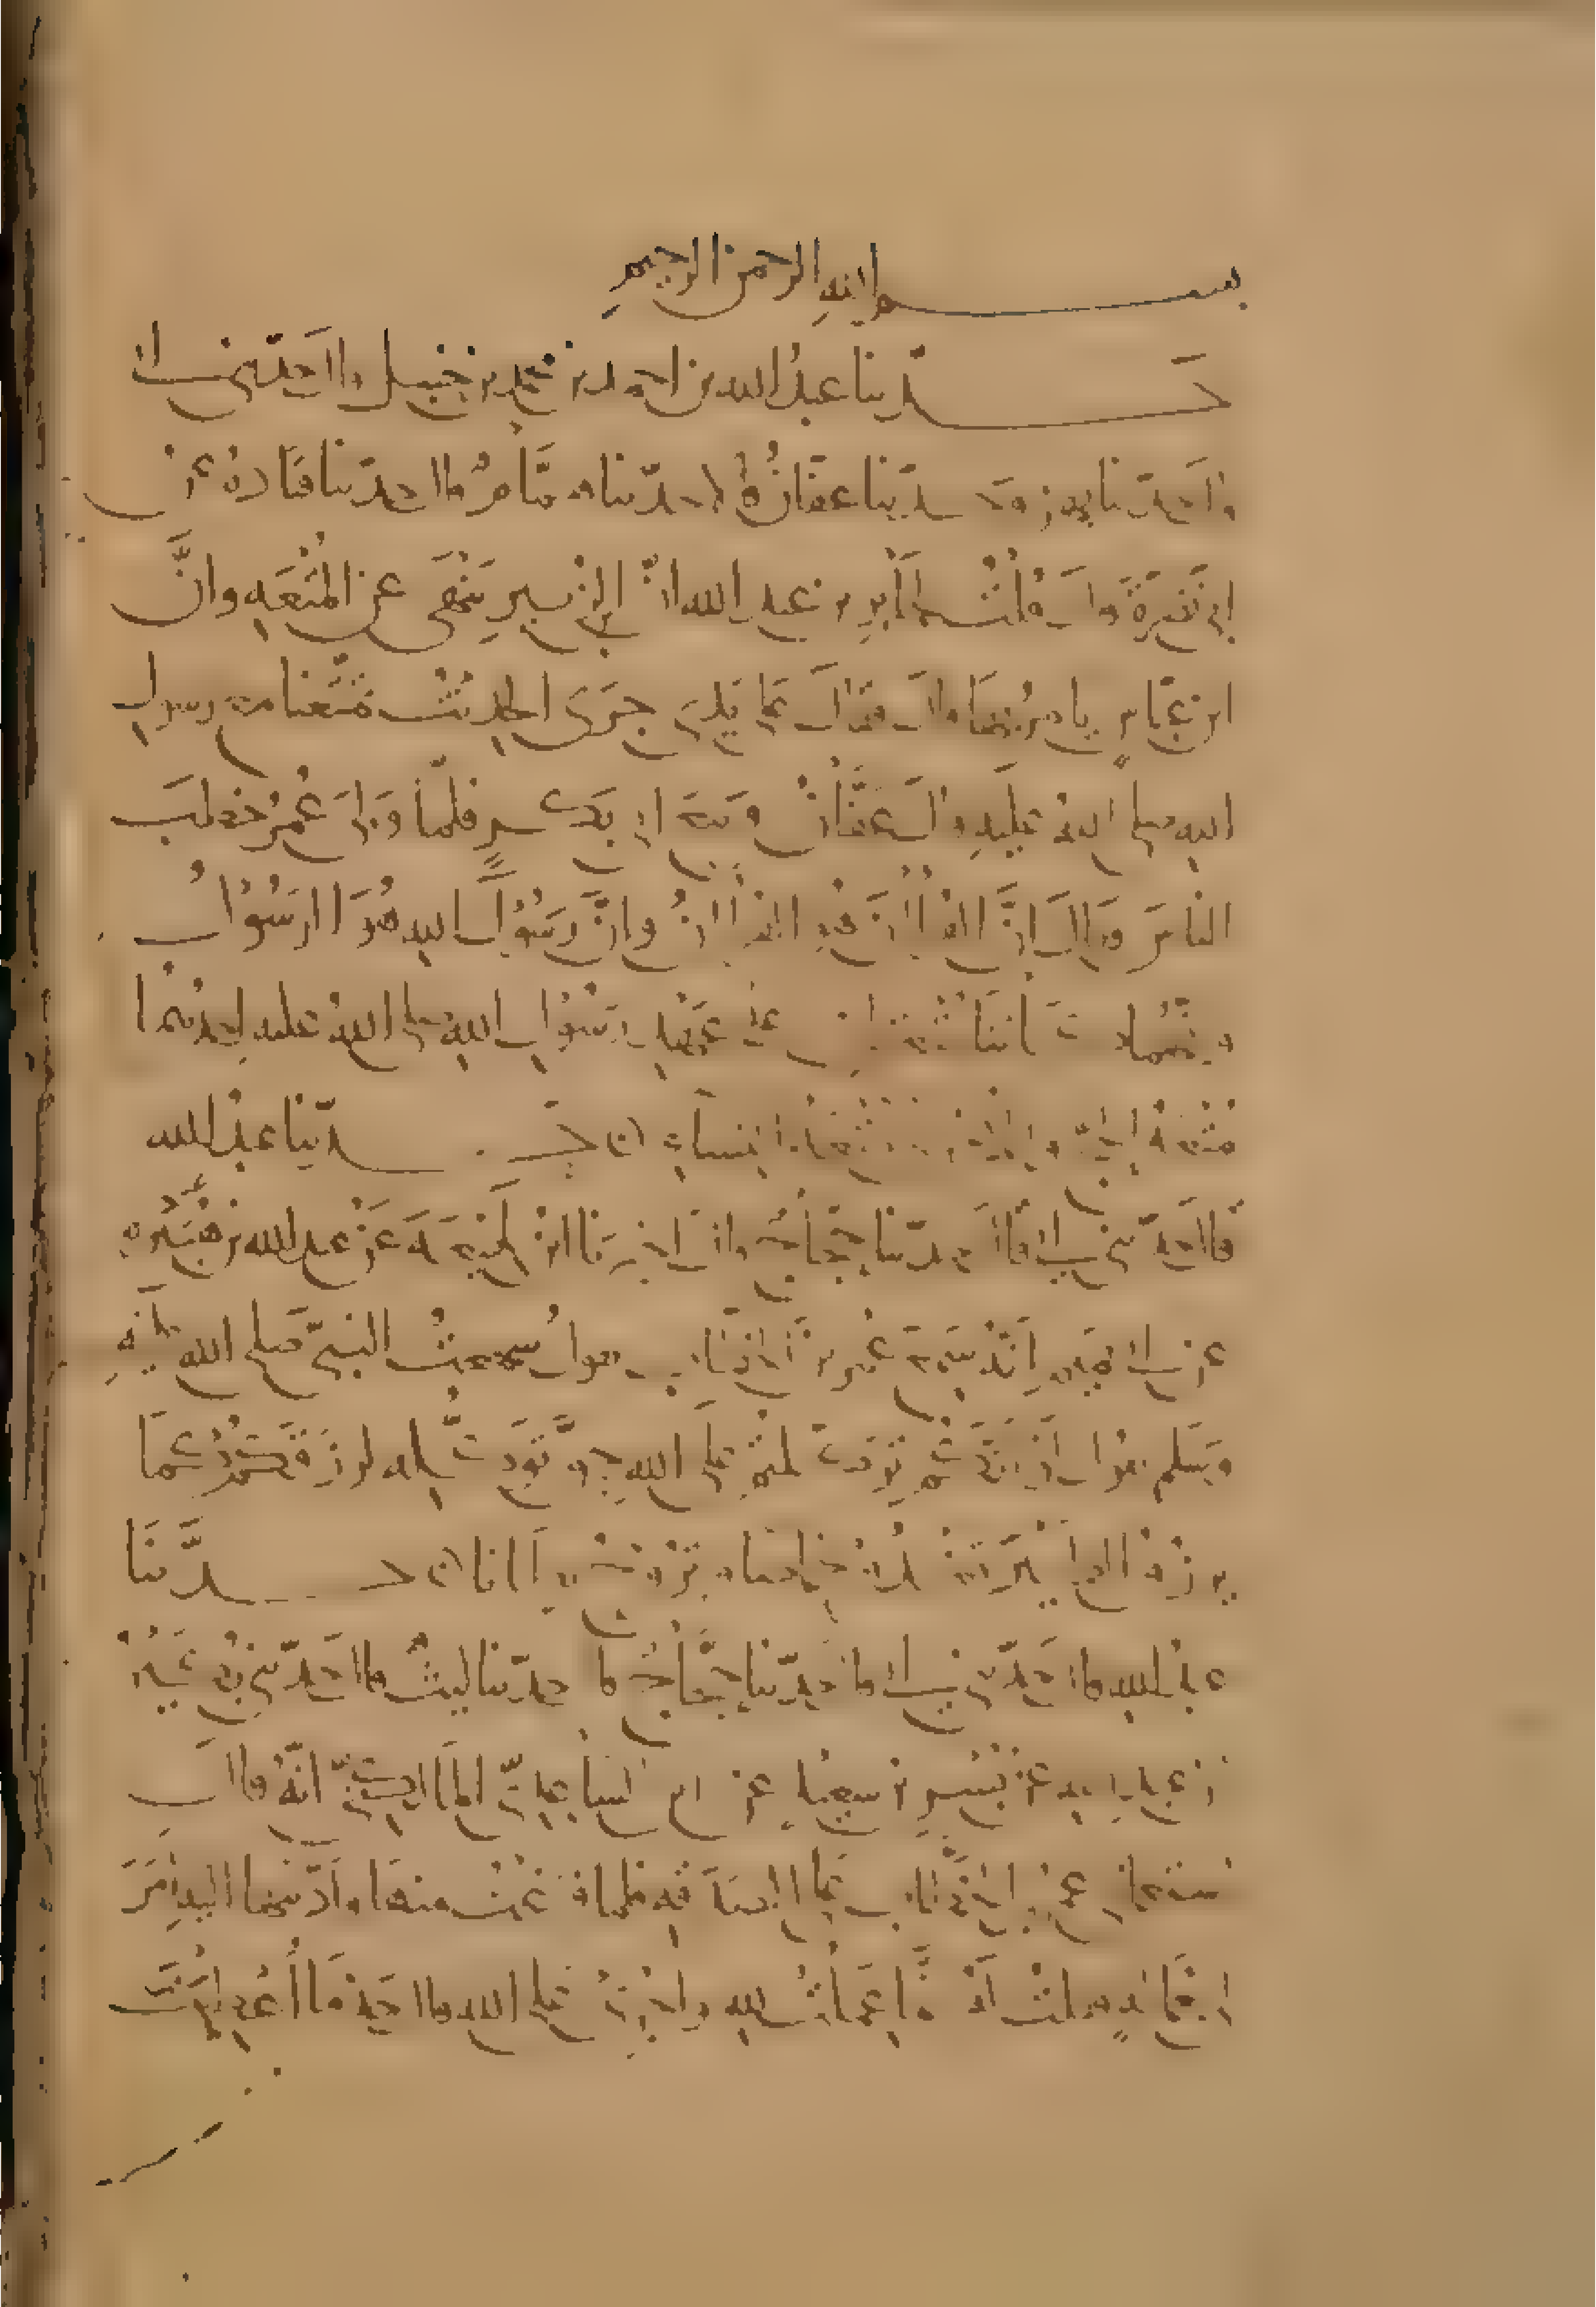 بسم الله الرحمن الرحيم
حدثنا عبد الله بن احمد بن محمد بن حنبل قال حدثني ابي
قال حدثنا بهز وحدثنا عفان قالا حدثنا همام قال حدثنا قتادة عن
ابي نضرة قال قلت لجابر بن عبد الله ان ابن الزبير ينهى عن المتعه وان
ابن عباس يامر بها قال فقال على يدي جرى الحديث تمتعنا مع رسول
الله صلى الله عليه قال عفان ومع ابي بكر فلما ولي عمر خطب
الناس فقال ان القران هو القران وان رسول الله هو الرسول
وانهما كانتا متعتان على عهد رسول الله صلى الله عليه احدهما
متعة الحج والاخرى متعة النساء حدثنا عبد الله
قال حدثني ابي قال حدثنا حجاج قال اخبرنا ابن لهيعة عن عبد الله بن هبيرة
عن ابي تميم انه سمع عمر بن الخطاب يقول سمعت النبي صلى الله عليه
وسلم يقول لو انكم توكلتم على الله حق توكله لرزقكم كما
يرزق الطير تغدو خماصا وتروح بطانا حدثنا
عبد الله قال حدثني ابي قال حدثنا حجاج قال حدثنا ليث قال حدثني بكير
بن عبد الله عن بسر بن سعيد عن ابن الساعدي المالكي انه قال
استعملني عمر بن الخطاب على الصدقة فلما فرغت منها واديتها اليه امر
لي بعمالة فقلت له انما عملت لله واجري على الله قال خذ ما اعطيت